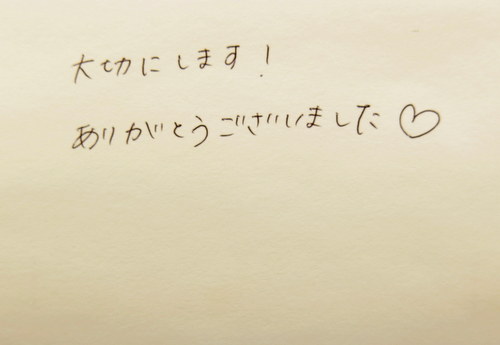 大切にします！
ありがとうございました♡